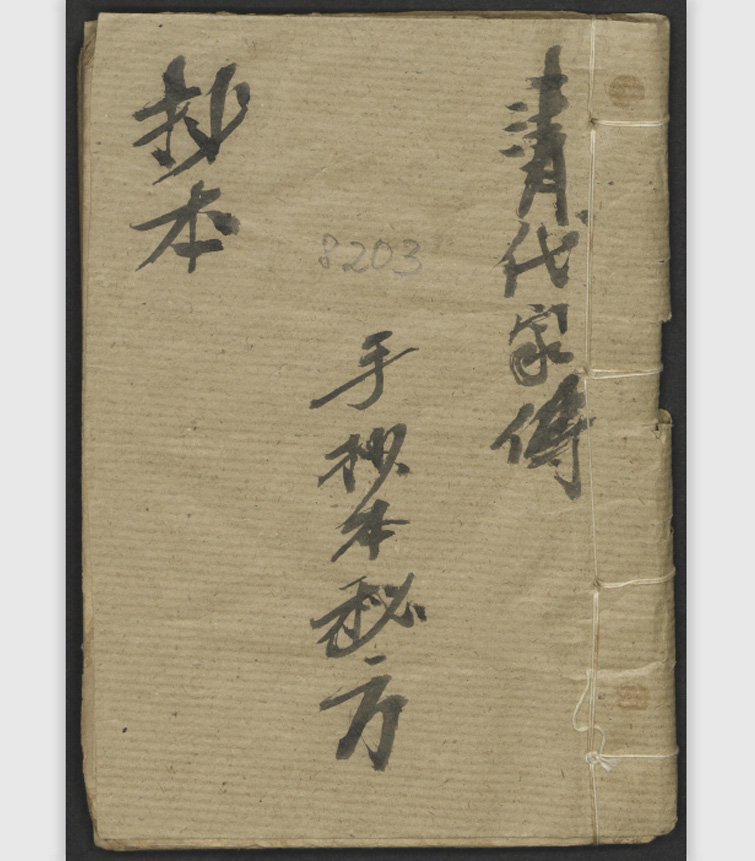 清代家傳
手抄本秘方
抄本
8203